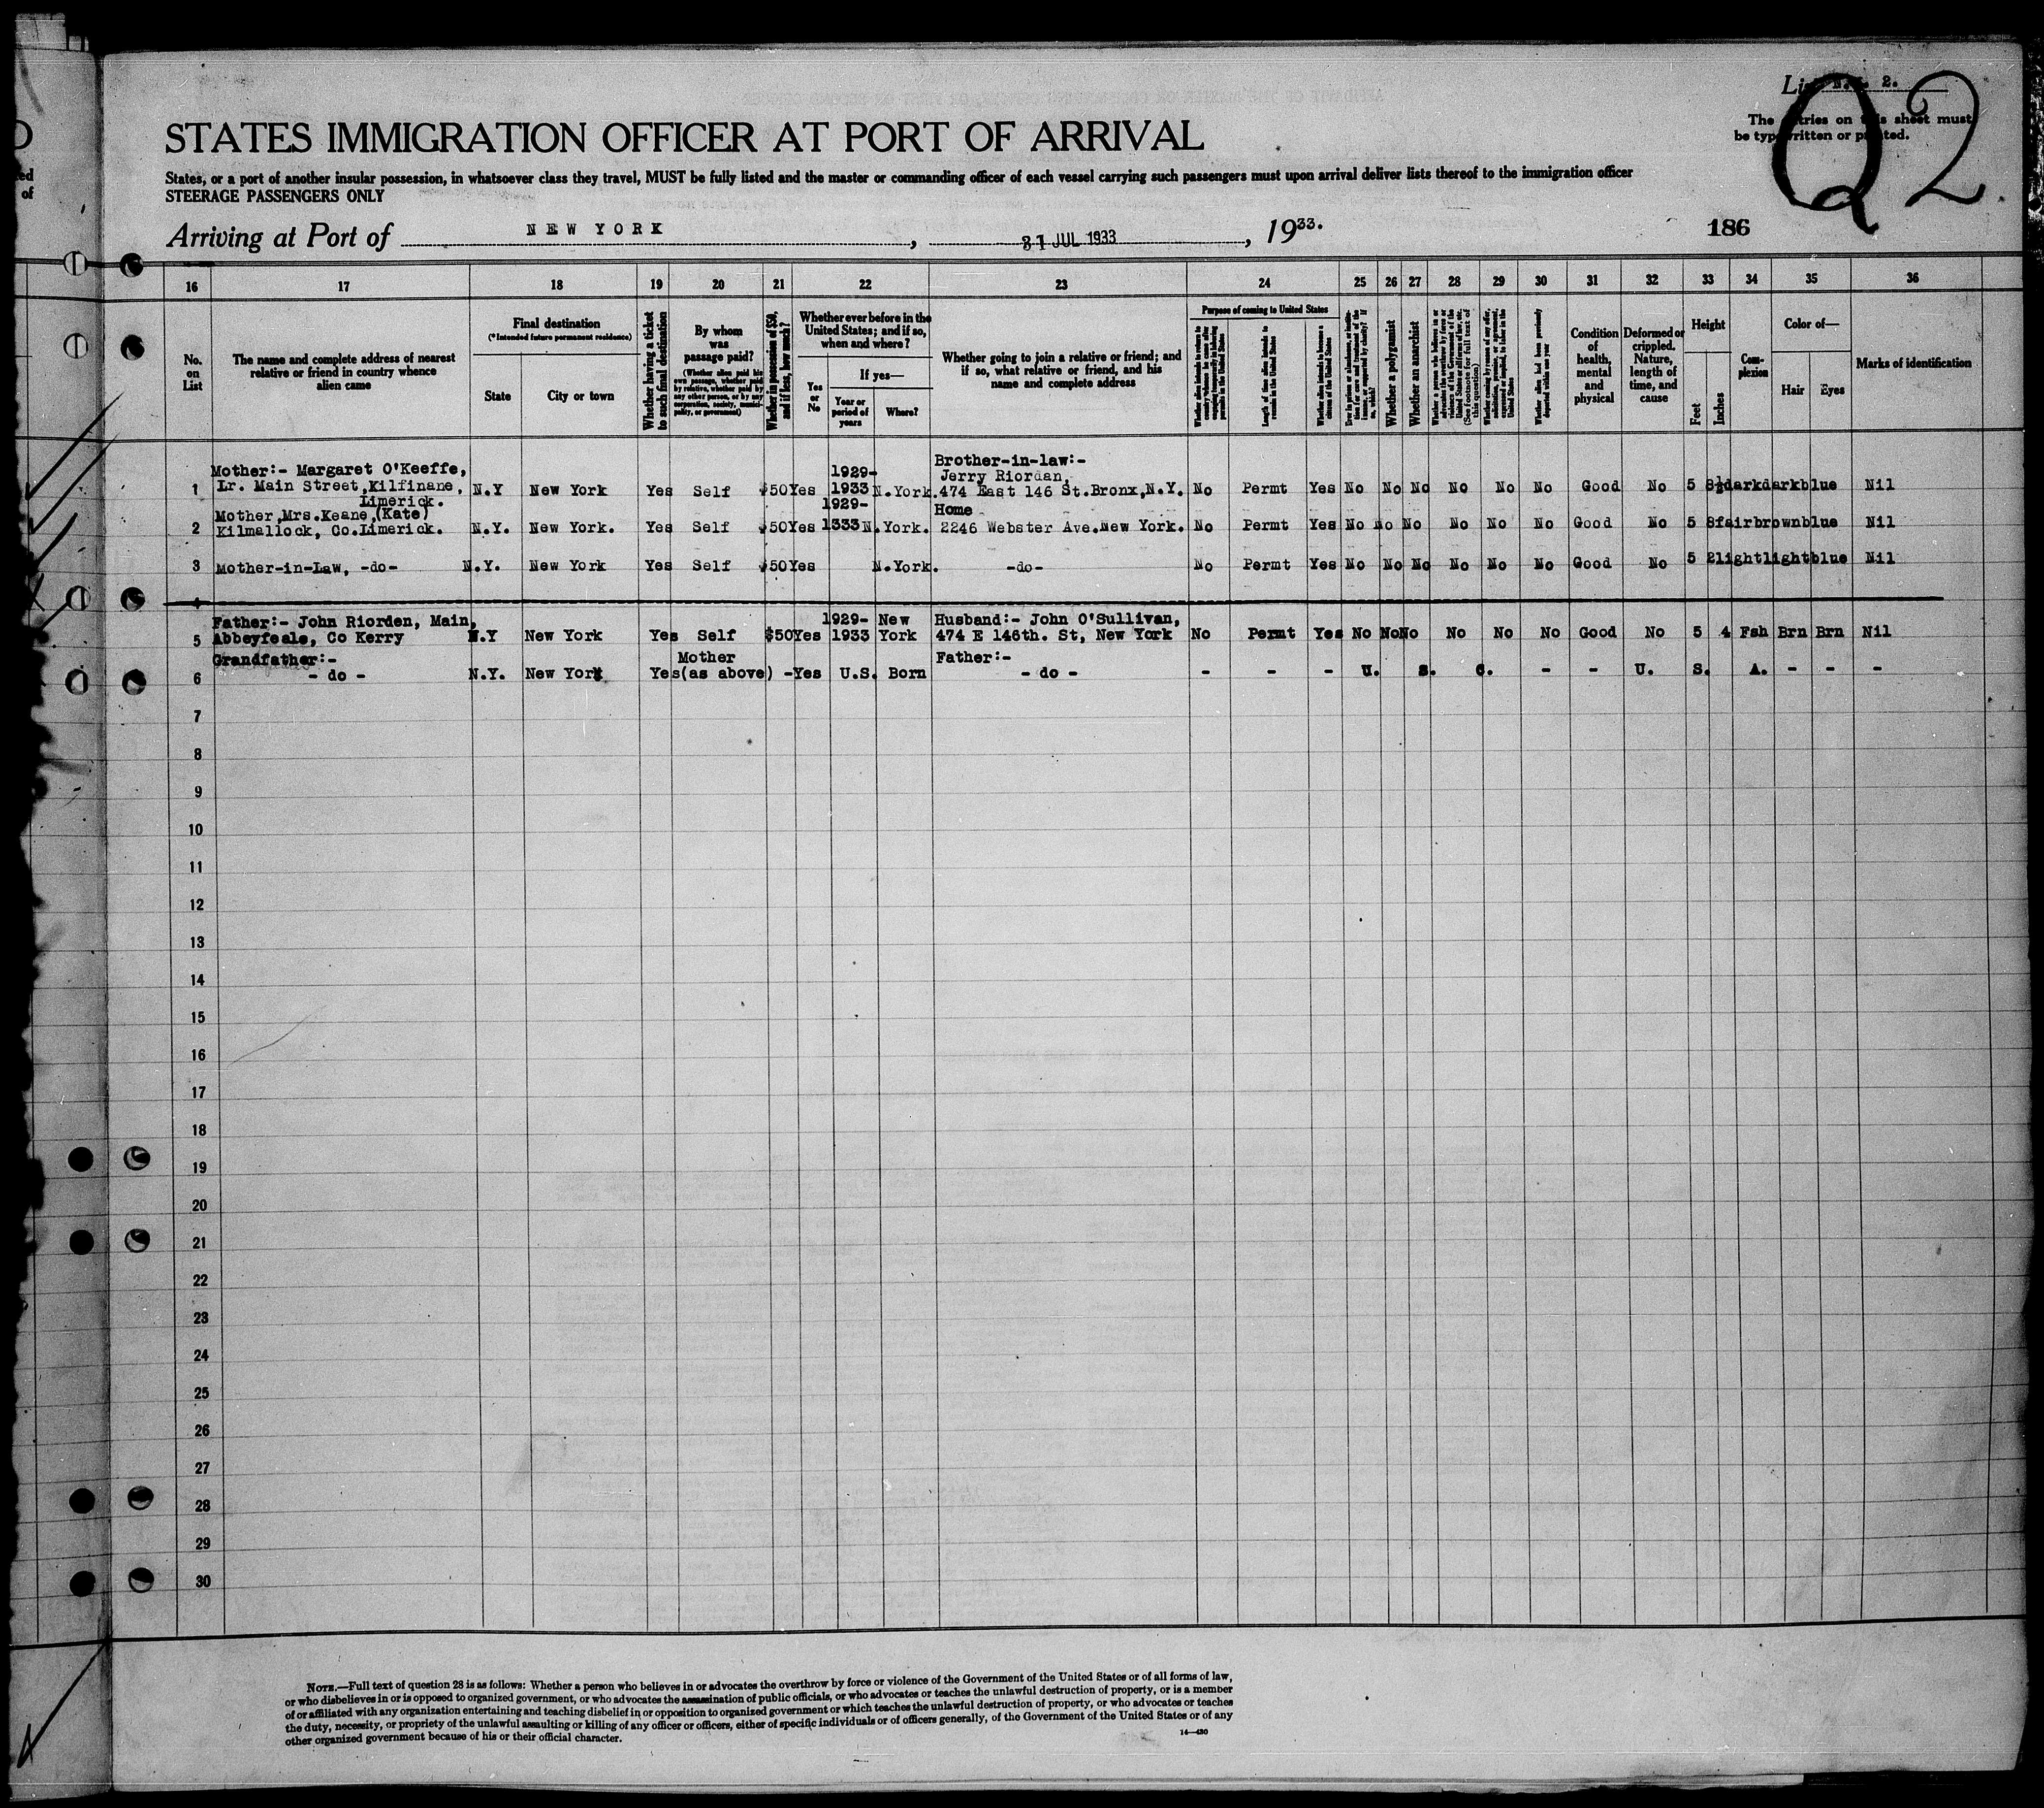 List No. 2.
Q2
The entries on this sheet must
be typewritten or printed.
STATES IMMIGRATION OFFICER AT PORT OF ARRIVAL
States, or a port of another insular possession, in whatsoever class they travel, MUST be fully listed and the master or commanding officer of each vessel carrying such passengers must upon arrival deliver lists thereof to the immigration officer
STEERAGE PASSENGERS ONLY
Arriving at Port of NEW YORK, 31 JUL 1933, 1933.
186
16 17 18 19 20 21 22 23 24 25 26 27 28 29 30 31 32 33 34 35 36
No. on List
The name and complete address of nearest relative or friend in country whence alien came
Final destination
(*Intended future permanent residence)
State
City or town
Whether having a ticket to such final destination
By whom was passage paid?
(Whether alien paid his own passage, whether paid by relative, whether paid by any other person, or by any corporation, society, municipality, or government)
Whether in possession of $50, and if less, how much?
Whether ever before in the United States; and if so, when and where?
Yes or No
If yes—
Year or period of years
Where?
Whether going to join a relative or friend; and if so, what relative or friend, and his name and complete address
Purpose of coming to United States
Length of time alien intends to remain in the United States
Whether alien intends to become a citizen of the United States
Whether a polygamist
Whether an anarchist
(See footnote for full text of this question)
Whether alien had been previously deported within one year
Condition of health, mental and physical
Deformed or crippled. Nature, length of time, and cause
Height
Feet
Inches
Complexion
Color of—
Hair
Eyes
Marks of identification
Mother:- Margaret O'Keeffe,
Lr. Main Street, Kilfinane,
Limerick.
1 N.Y New York Yes Self $50 Yes 1929-1933 N.York. Brother-in-law:- Jerry Riordan, 474 East 146 St.Bronx,N.Y. No Permt Yes No No No No No No Good No 5 8½ dark dark blue Nil
Mother,Mrs.Keane,(Kate)
Kilmallock, Co.Limerick.
2 N.Y. New York. Yes Self $50 Yes 1929-1333 N.York. Home 2246 Webster Ave.New York. No Permt Yes No No No No No No Good No 5 8 fair brown blue Nil
3 Mother-in-Law, -do- N.Y. New York Yes Self $50 Yes N.York. -do- No Permt Yes No No No No No No Good No 5 2 light light blue Nil
4
Father:- John Riorden, Main,
5 Abbeyfeale, Co Kerry N.Y New York Yes Self $50 Yes 1929-1933 New York Husband:- John O'Sullivan, 474 E 146th. St, New York No Permt Yes No No No No No No Good No 5 4 Fsh Brn Brn Nil
Grandfather:-
6 - do - N.Y. New York Yes Mother (as above) - Yes U.S. Born Father:- - do - - - - U. S. C. - - U. S. A. - - -
7
8
9
10
11
12
13
14
15
16
17
18
19
20
21
22
23
24
25
26
27
28
29
30
NOTE.—Full text of question 28 is as follows: Whether a person who believes in or advocates the overthrow by force or violence of the Government of the United States or of all forms of law,
or who disbelieves in or is opposed to organized government, or who advocates the assassination of public officials, or who advocates or teaches the unlawful destruction of property, or is a member
of or affiliated with any organization entertaining and teaching disbelief in or opposition to organized government or which teaches the unlawful destruction of property, or who advocates or teaches
the duty, necessity, or propriety of the unlawful assaulting or killing of any officer or officers, either of specific individuals or of officers generally, of the Government of the United States or of any
other organized government because of his or their official character.
14—430